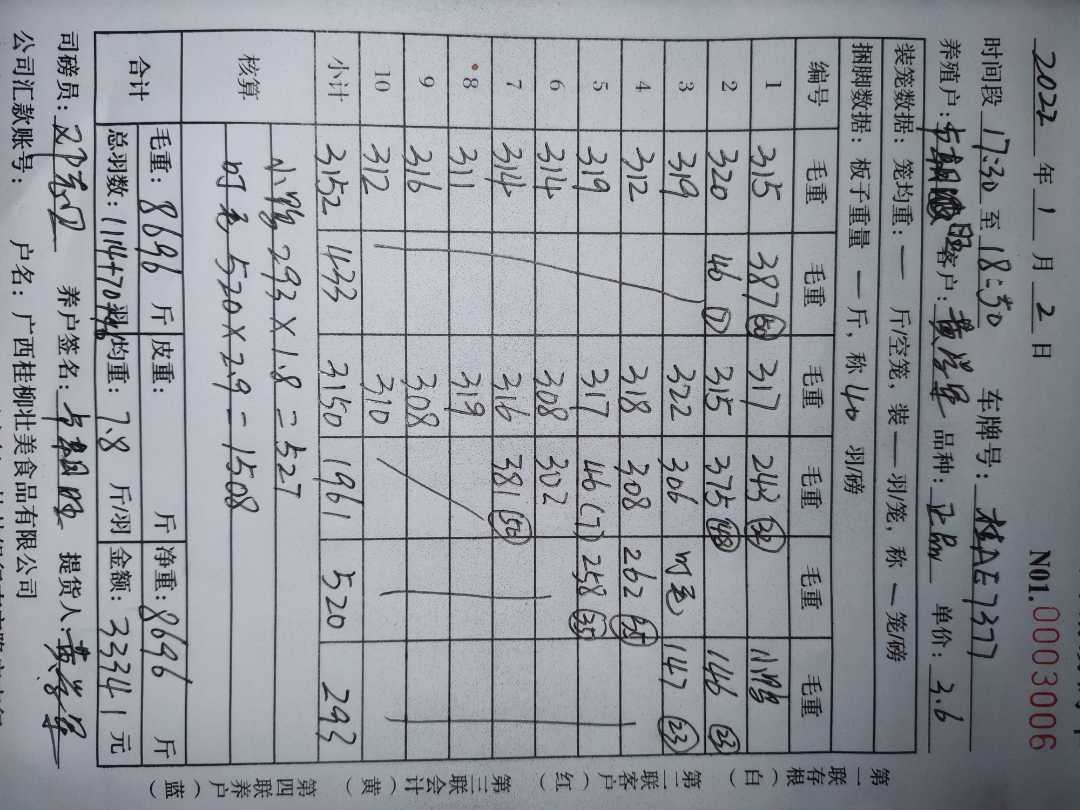 N01.0003006
2022 年 1 月 2 日
时间段 17:30 至 18:50 车牌号: 桂AE7377
养殖户: 旺 客户: 黄 品种: 单价: 3.6
装笼数据: 笼均重: — 斤/空笼, 装 — 羽/笼, 称 — 笼/磅
捆脚数据: 板子重量 — 斤, 称 40 羽/磅
编号 毛重 毛重 毛重 毛重 毛重 毛重
1 315 387 (50) 317 243 (32) 小鸭
2 320 46 (7) 315 375 (48) 146 (23)
3 319 322 306 可毛 147 (23)
4 312 318 308 262 (35)
5 319 317 46 (7) 258 (35)
6 314 308 302
7 314 316 381 (52)
8 311 319
9 316 308
10 312 310
小计 3152 433 3150 1961 520 293
核算
小鸭 293×1.8=527
可毛 520×2.9=1508
合计 毛重: 8696 斤 皮重: 斤 净重: 8696 斤
总羽数: 1114+70+46 羽 均重: 7.8 斤/羽 金额: 33341 元
司磅员: 养户签名: 旺 提货人: 黄
公司汇款账号: 户名: 广西桂柳壮美食品有限公司
第一联存根(白) 第二联客户(红) 第三联会计(黄) 第四联养户(蓝)